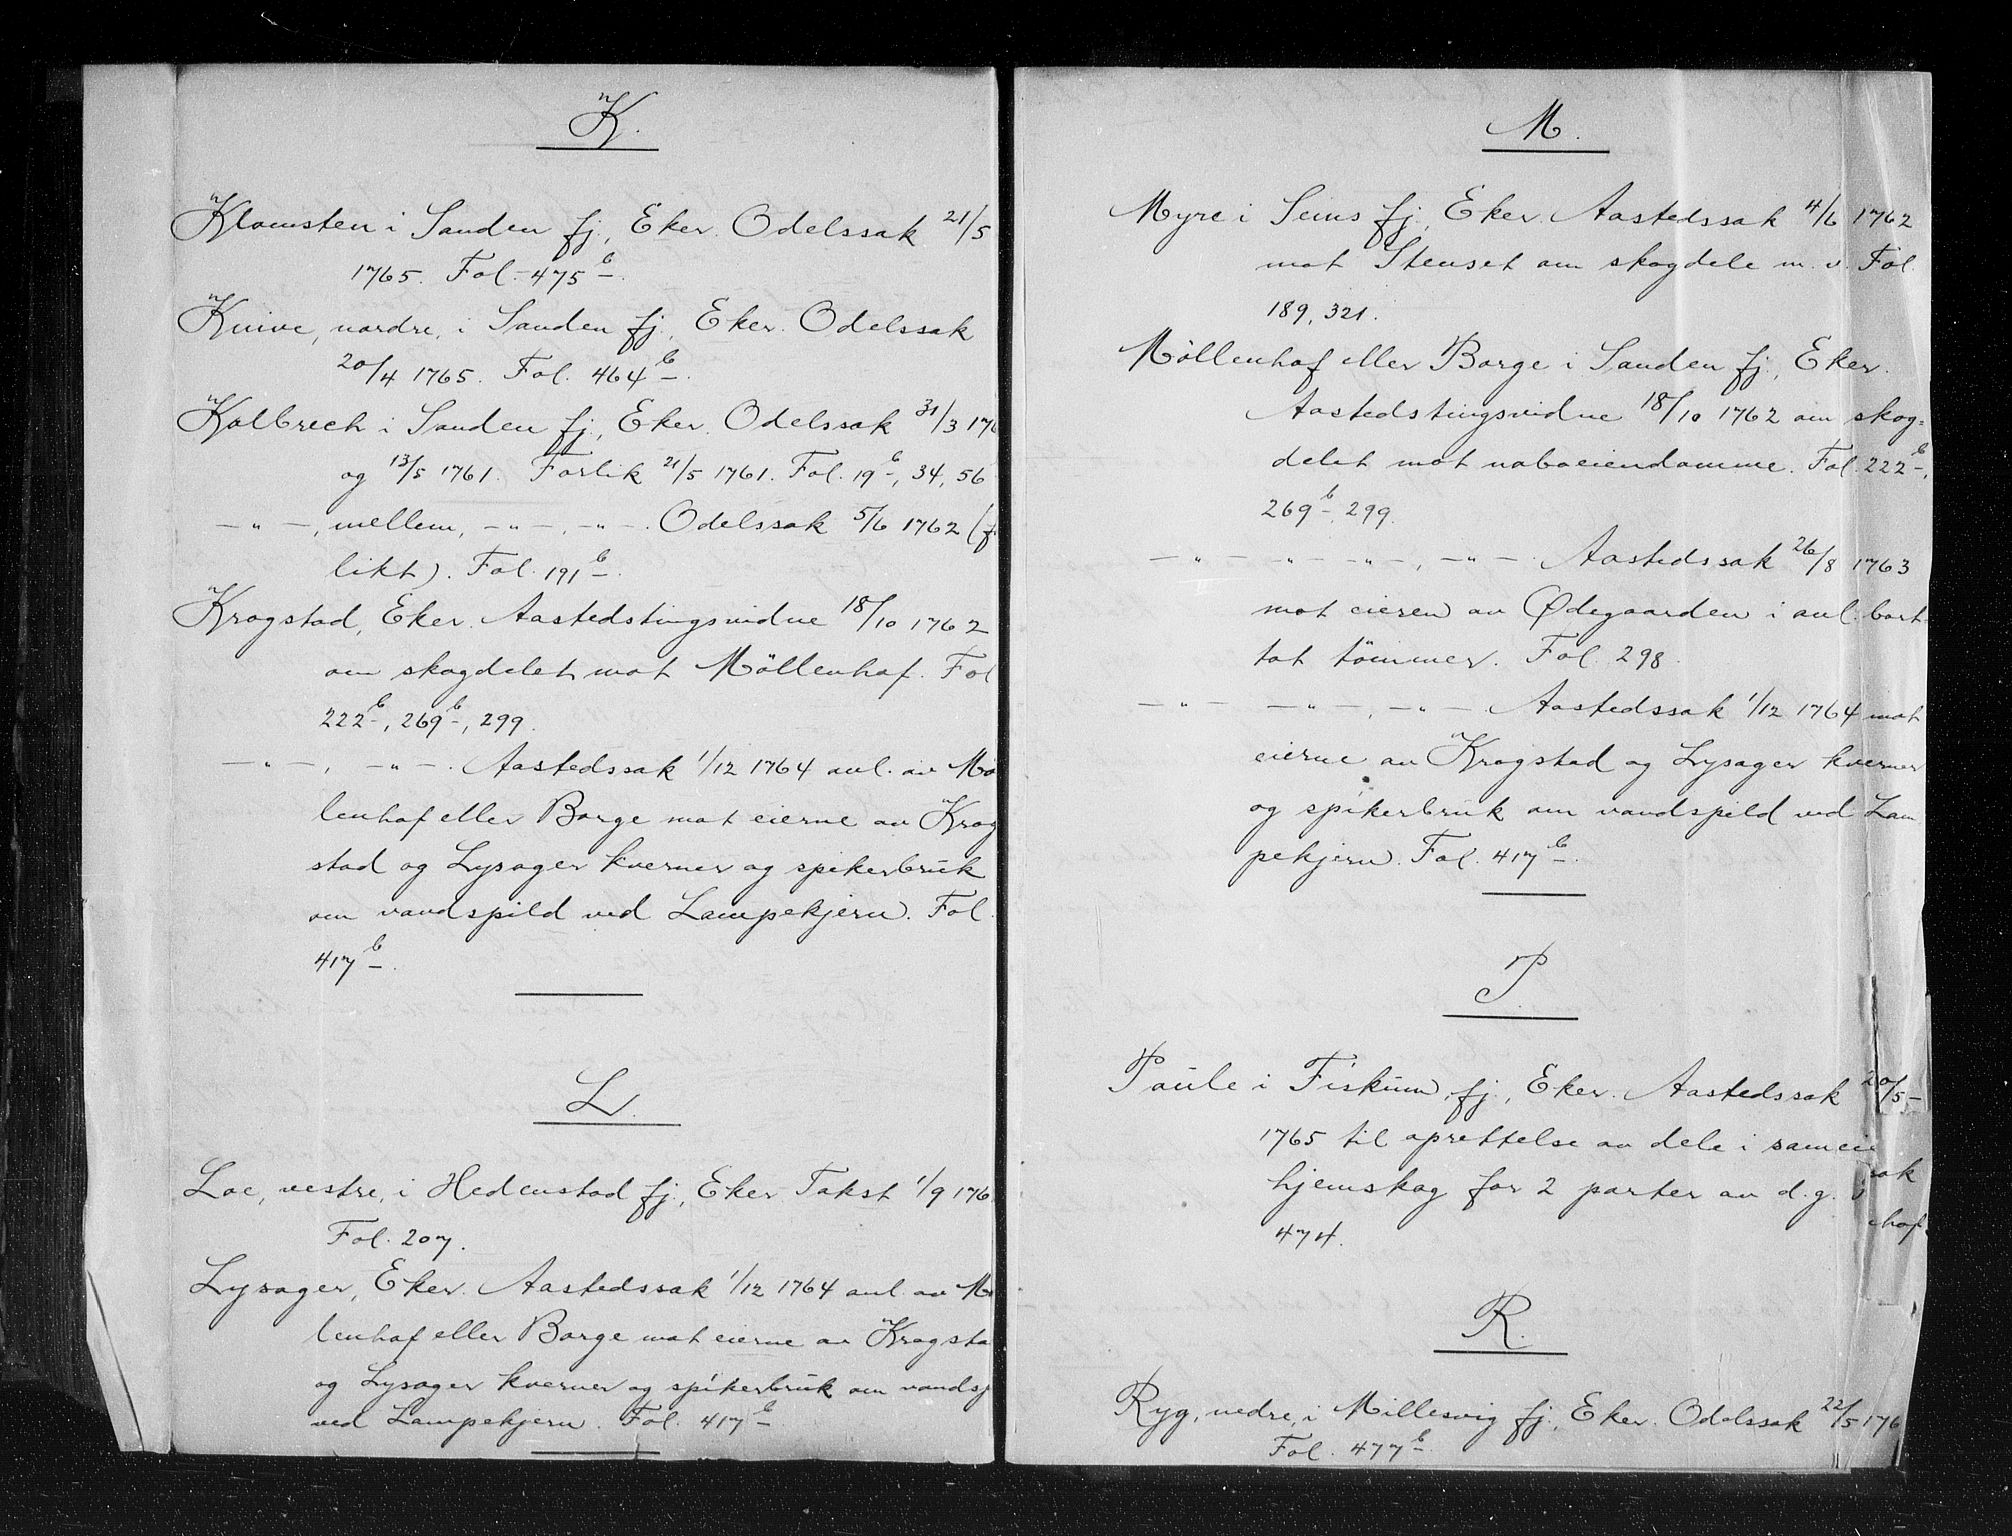 K.
Klomsten i Sanden fj., Eker. Odelssak 21/5
1765. Fol. 475b.
Knive, nordre, i Sanden fj., Eker. Odelssak
20/4 1765. Fol. 464b.
Kolbrech i Sanden fj., Eker. Odelssak 31/3 176
og 13/5 1761. Forlik 21/5 1761. Fol. 19b, 34, 56
—"—, mellem, —"—, —"—. Odelssak 5/6 1762 (f
likt). Fol. 191b.
Krogstad, Eker. Aastedstingsvidne 18/10 1762
om skogdelet mot Möllenhof. Fol
222b, 269b, 299.
—"—, —"—. Aastedssak 1/12 1764 anl. av Mö
lenhof eller Borge mot eierne av Krog
stad og Lysager kverner og spikerbruk
om vandspild ved Lampekjern. Fol.
417b.
L.
Loe, vestre, i Hedenstad fj., Eker. Takst 1/9 176
Fol. 207.
Lysager, Eker. Aastedssak 1/12 1764 anl. av Mö
lenhof eller Borge mot eierne av Krogsta
og Lysager kverner og spikerbruk om vandsp
ved Lampekjern. Fol. 417b
M.
Myre i Seims fj., Eker. Aastedssak 4/6 1762
mot Stenset om skogdele m. v. Fol.
189, 321.
Möllenhof eller Borge i Sanden fj., Eker.
Aastedstingsvidne 18/10 1762 om skog=
delet mot naboeiendomme. Fol. 222b,
269b, 299.
—"— —"— —"—, —"—. Aastedssak 26/8 1763
mot eieren av Ødegaarden i anl. bort
tat tömmer. Fol. 298.
—"— —"—, —"— Aastedssak 1/12 1764 mot
eierne av Krogstad og Lysager kverner
og spikerbruk om vandspild ved Lam
pekjern. Fol. 417b.
P.
Paule i Fiskum fj., Eker. Aastedssak 20/5 —
1765 til oprettelse av dele i sameie
hjemskog for 2 parter av d. g.
sak
474.
hof
R.
Ryg, nedre, i Millesvig fj., Eker. Odelssak 22/5 176
Fol. 477b.